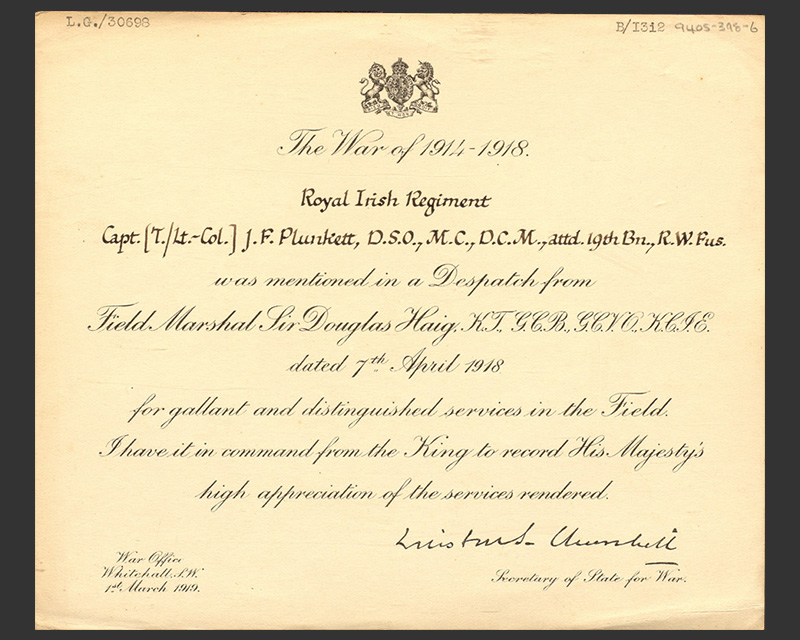 L.G./30698
B/1312 9405-398-6
The War of 1914-1918.
Royal Irish Regiment
Capt. [T./Lt.-Col.] J. F. Plunkett, D.S.O., M.C., D.C.M., attd. 19th Bn., R.W. Fus.
was mentioned in a Despatch from
Field Marshal Sir Douglas Haig, K.T., G.C.B., G.C.V.O., K.C.I.E.
dated 7th April 1918
for gallant and distinguished services in the Field.
I have it in command from the King to record His Majesty's
high appreciation of the services rendered.
Winston S. Churchill
Secretary of State for War.
War Office
Whitehall, S.W.
1st March 1919.